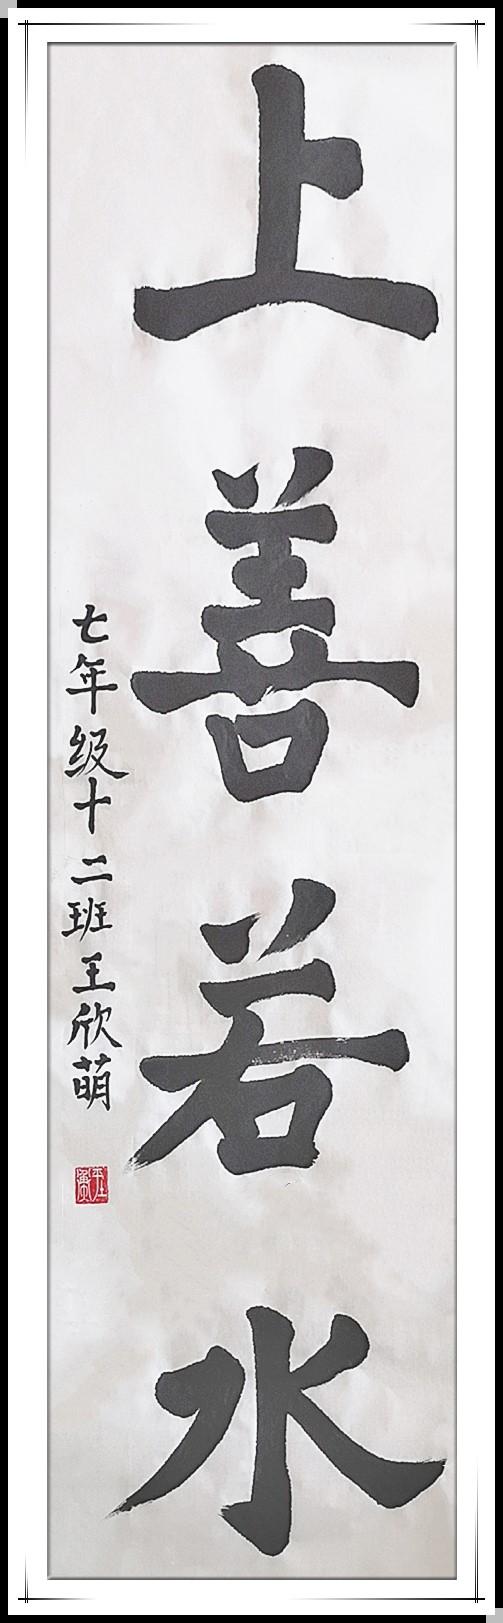 上善若水
七年级十二班王欣萌